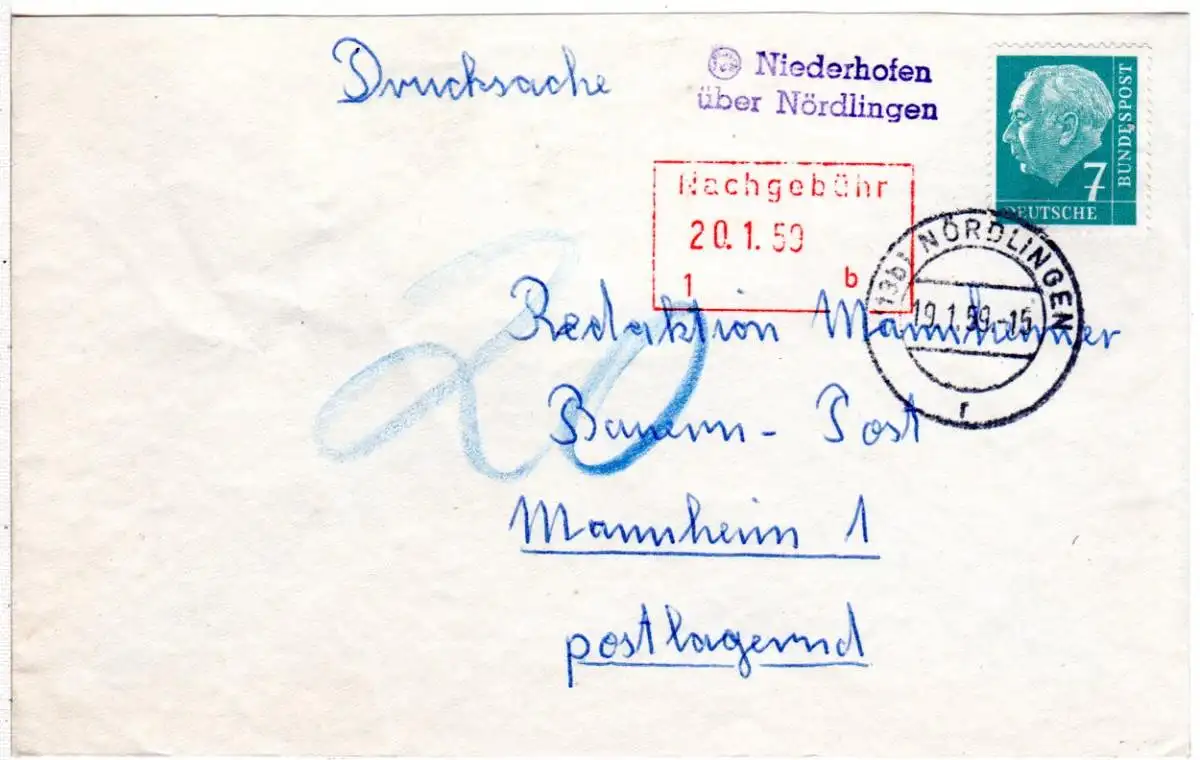 Drucksache
Niederhofen
über Nördlingen
7
BUNDESPOST
DEUTSCHE
Nachgebühr
20.1.59
1 b
(13b) NÖRDLINGEN
19.1.59.-15
r
20
Redaktion Mannheimer
Bauern-Post
Mannheim 1
postlagernd